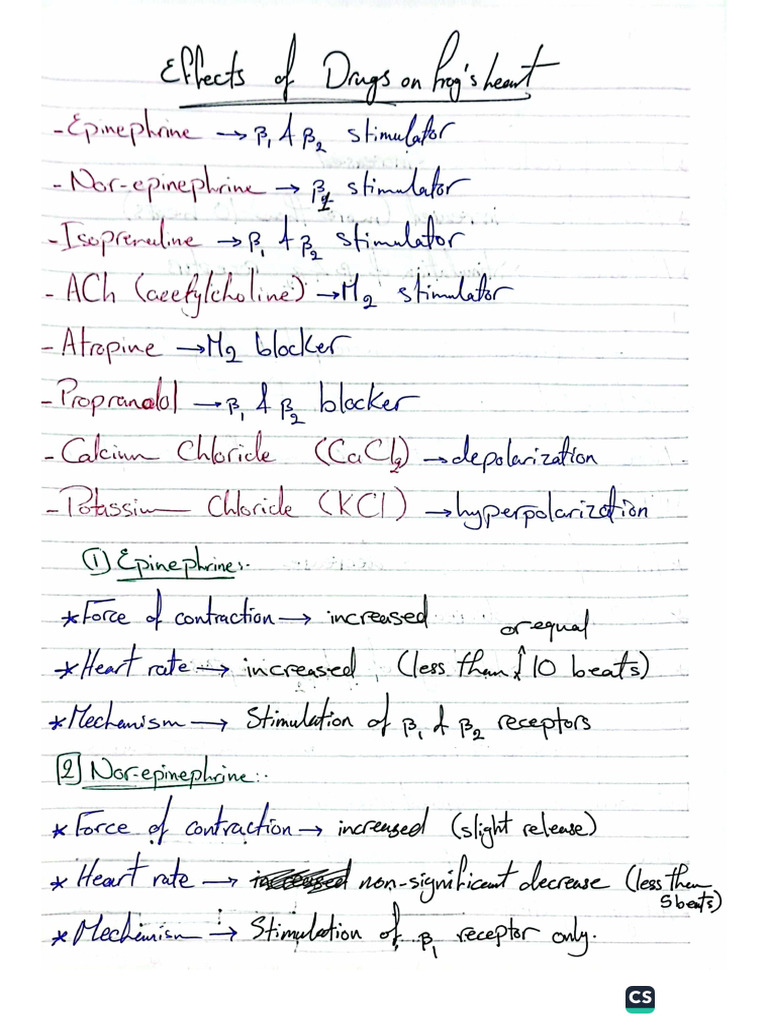 Effects of Drugs on frog's heart
- Epinephrine → β₁ & β₂ stimulator
- Nor-epinephrine → β₁ stimulator
- Isoprenaline → β₁ & β₂ stimulator
- ACh (acetylcholine) → M₂ stimulator
- Atropine → M₂ blocker
- Propranolol → β₁ & β₂ blocker
- Calcium Chloride (CaCl₂) → depolarization
- Potassium Chloride (KCl) → hyperpolarization
① Epinephrine:-
* Force of contraction → increased
* Heart rate → increased (less than or equal 10 beats)
* Mechanism → Stimulation of β₁ & β₂ receptors
[2] Nor-epinephrine:-
* Force of contraction → increased (slight release)
* Heart rate → non-significant decrease (less then 5 beats)
* Mechinism → Stimulation of β₁ receptor only.
CS